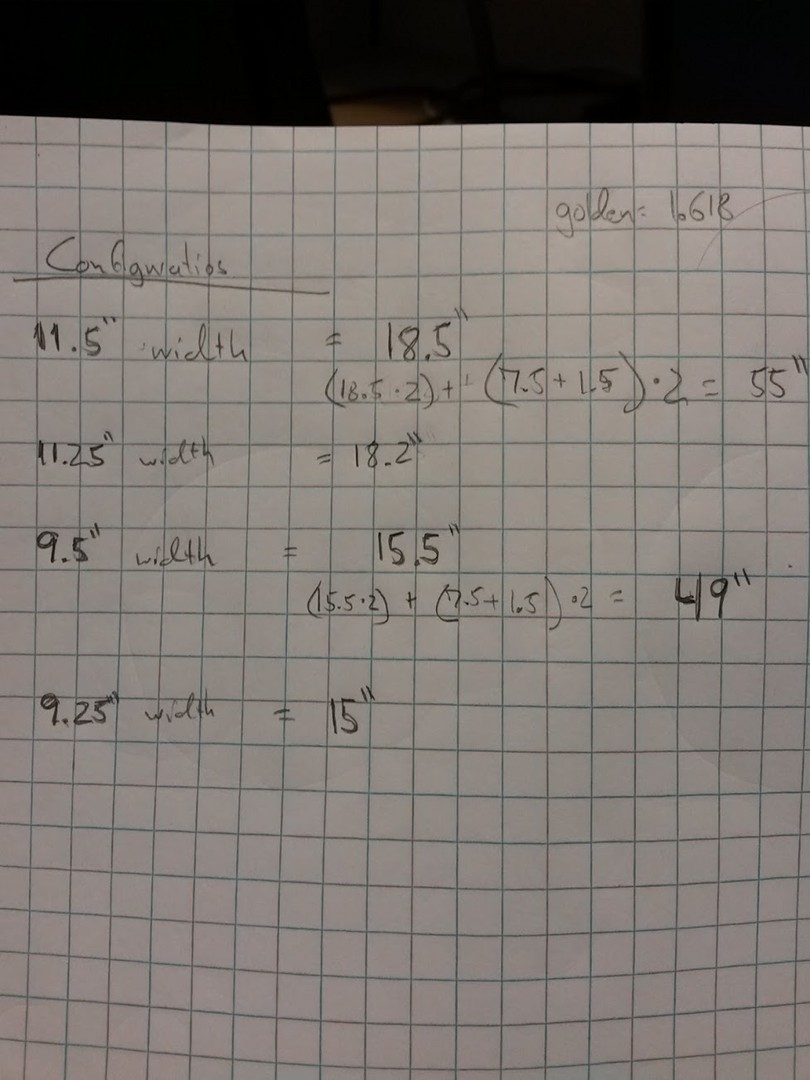 golden = 1.618
Configuratios
11.5" width = 18.5"
(18.5 · 2) + (7.5 + 1.5) · 2 = 55"
11.25" width = 18.2"
9.5" width = 15.5"
(15.5 · 2) + (7.5 + 1.5) · 2 = 49"
9.25" width = 15"